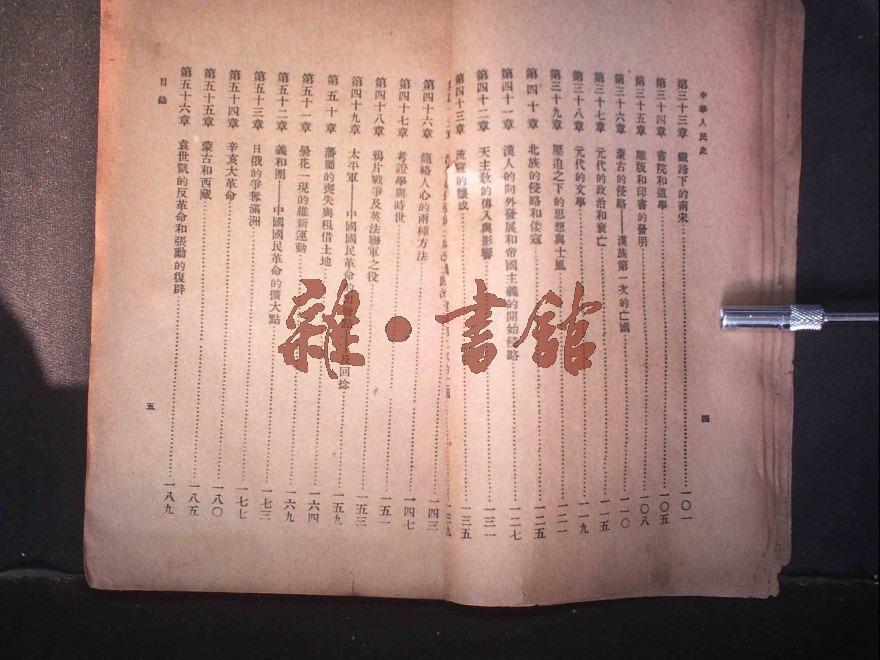 中華人民史
第三十三章　鐵蹄下的南宋…………一〇一
第三十四章　書院和道學…………一〇五
第三十五章　雕版和印書的發明…………一〇八
第三十六章　蒙古的侵略——漢族第一次的亡國…………一一〇
第三十七章　元代的政治和衰亡…………一一五
第三十八章　元代的文學…………一一九
第三十九章　壓迫之下的思想與士風…………一二一
第四十章　北族的侵略和倭寇…………一二五
第四十一章　漢人的向外發展和帝國主義的開始侵略…………一二七
第四十二章　天主教的傳入與影響…………一三一
第四十三章　流寇的釀成…………一三五
四
第四十六章　籠絡人心的兩種方法…………一四三
第四十七章　考證學與時世…………一四七
第四十八章　鴉片戰爭及英法聯軍之役…………一五一
第四十九章　太平軍——中國國民革命的 及回捻…………一五三
第五十章　藩屬的喪失與租借土地…………一五九
第五十一章　曇花一現的維新運動…………一六四
第五十二章　義和團——中國國民革命的擴大點…………一六九
第五十三章　日俄的爭奪滿洲…………一七三
第五十四章　辛亥大革命…………一七七
第五十五章　蒙古和西藏…………一八〇
第五十六章　袁世凱的反革命和張勳的復辟…………一八五
一八九
目錄
五
雜·書館